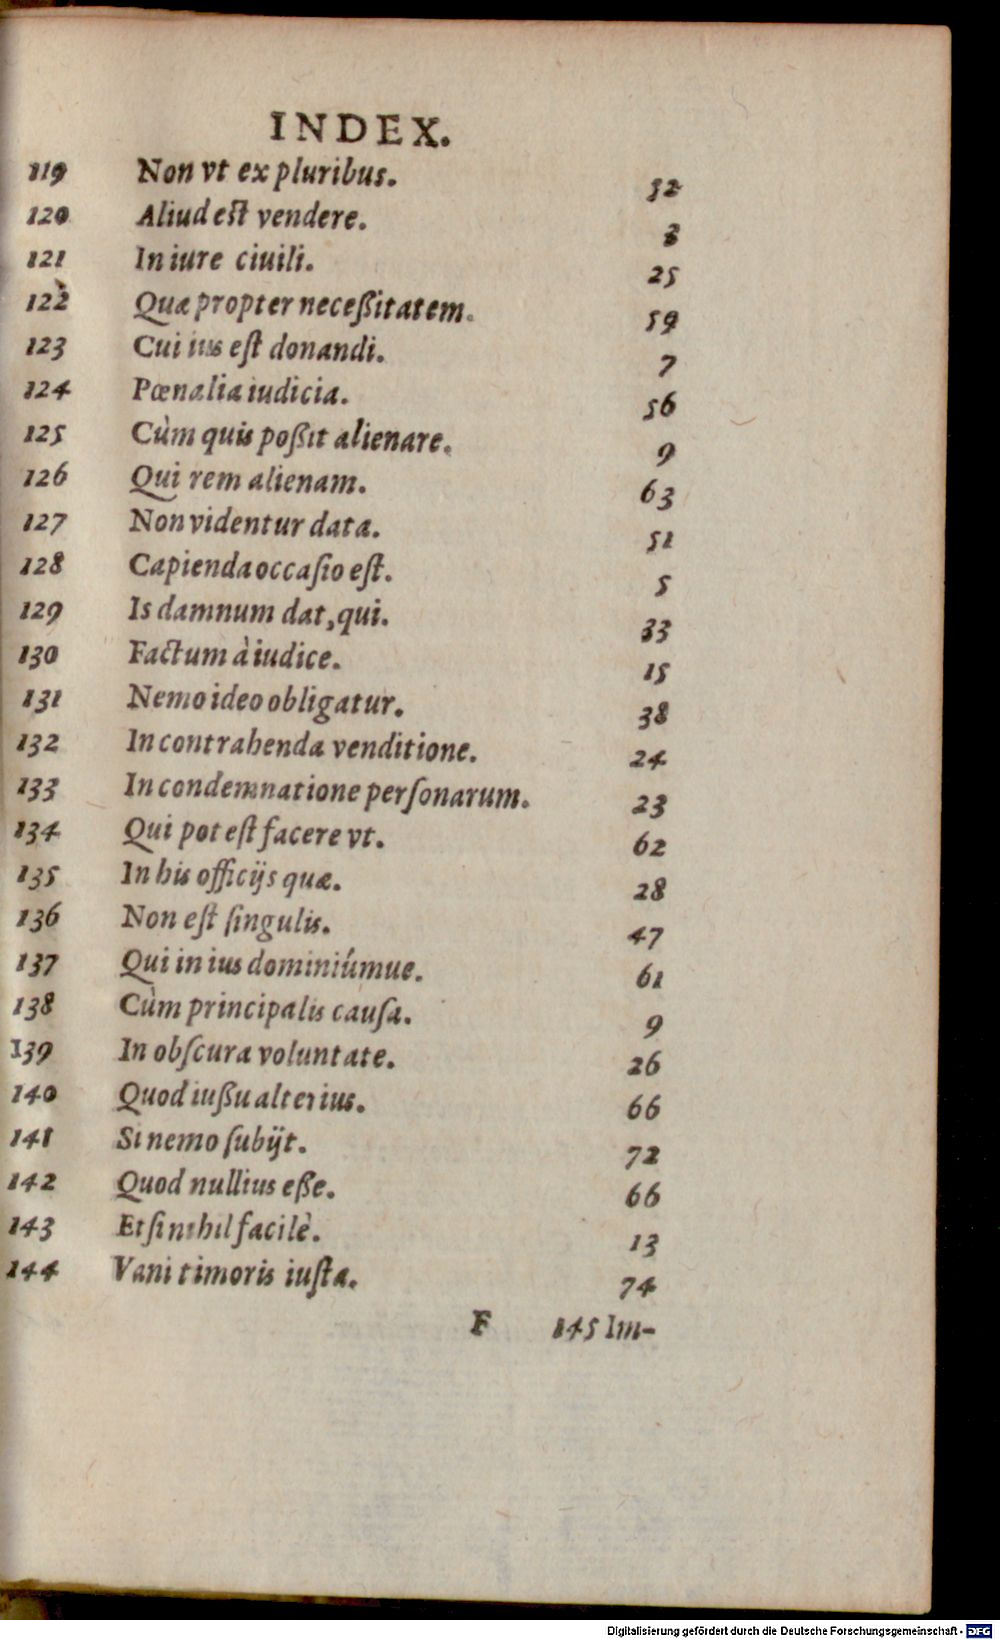 INDEX.
119 Non vt ex pluribus. 52
120 Aliud eſt vendere. 3
121 In iure ciuili. 25
122 Quæ propter neceßitatem. 59
123 Cui ius eſt donandi. 7
124 Pœnalia iudicia. 56
125 Cùm quis poßit alienare. 9
126 Qui rem alienam. 63
127 Non videntur data. 51
128 Capienda occaſio eſt. 5
129 Is damnum dat, qui. 33
130 Factum à iudice. 15
131 Nemo ideo obligatur. 38
132 In contrahenda venditione. 24
133 In condemnatione perſonarum. 23
134 Qui poteſt facere vt. 62
135 In his officijs quæ. 28
136 Non eſt ſingulis. 47
137 Qui in ius dominiúmue. 61
138 Cùm principalis cauſa. 9
139 In obſcura voluntate. 26
140 Quod iußu alterius. 66
141 Si nemo ſubijt. 72
142 Quod nullius eße. 66
143 Etſi nihil facilè. 13
144 Vani timoris iuſta. 74
F 145 Im-
Digitalisierung gefördert durch die Deutsche Forschungsgemeinschaft - DFG